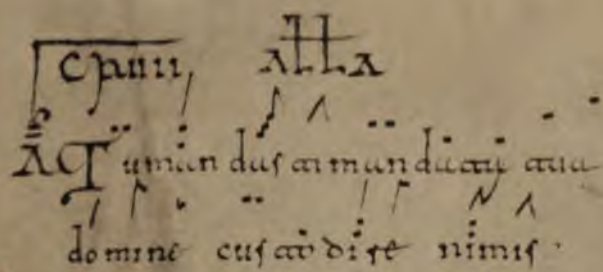 CXVIII ALLA
A Tu man das ti man data tua
do mine cus to di re nimis.